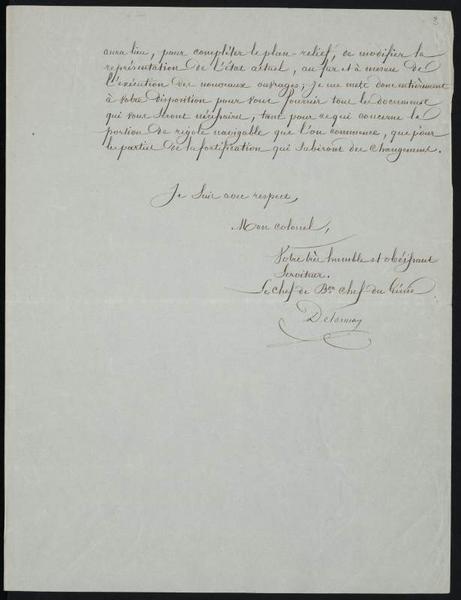 aura lieu, pour compléter le plan relief, de modifier la
représentation de l'état actuel, au fur et à mesure de
l'exécution des nouveaux ouvrages; je me mets donc entièrement
à votre disposition pour vous fournir tous les documents
qui vous seront nécessaires, tant pour ce qui concerne la
portion de rigole navigable que l'on commence, que pour
les parties de la fortification qui subiront des changements.
Je suis avec respect,
Mon colonel,
Votre très humble et obéissant
Serviteur.
Le Chef de Bon Chef du Génie